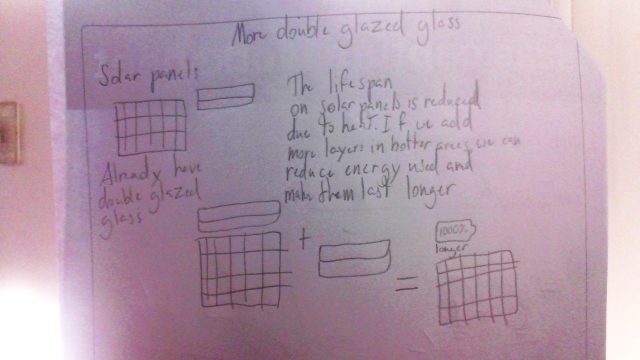 More double glazed glass
Solar panel:
The lifespan
on solar panels is reduced
due to heat. If we add
more layers in hotter areas we can
reduce energy used and
make them last longer
Already have
double glazed
glass
+
=
1000%
longer